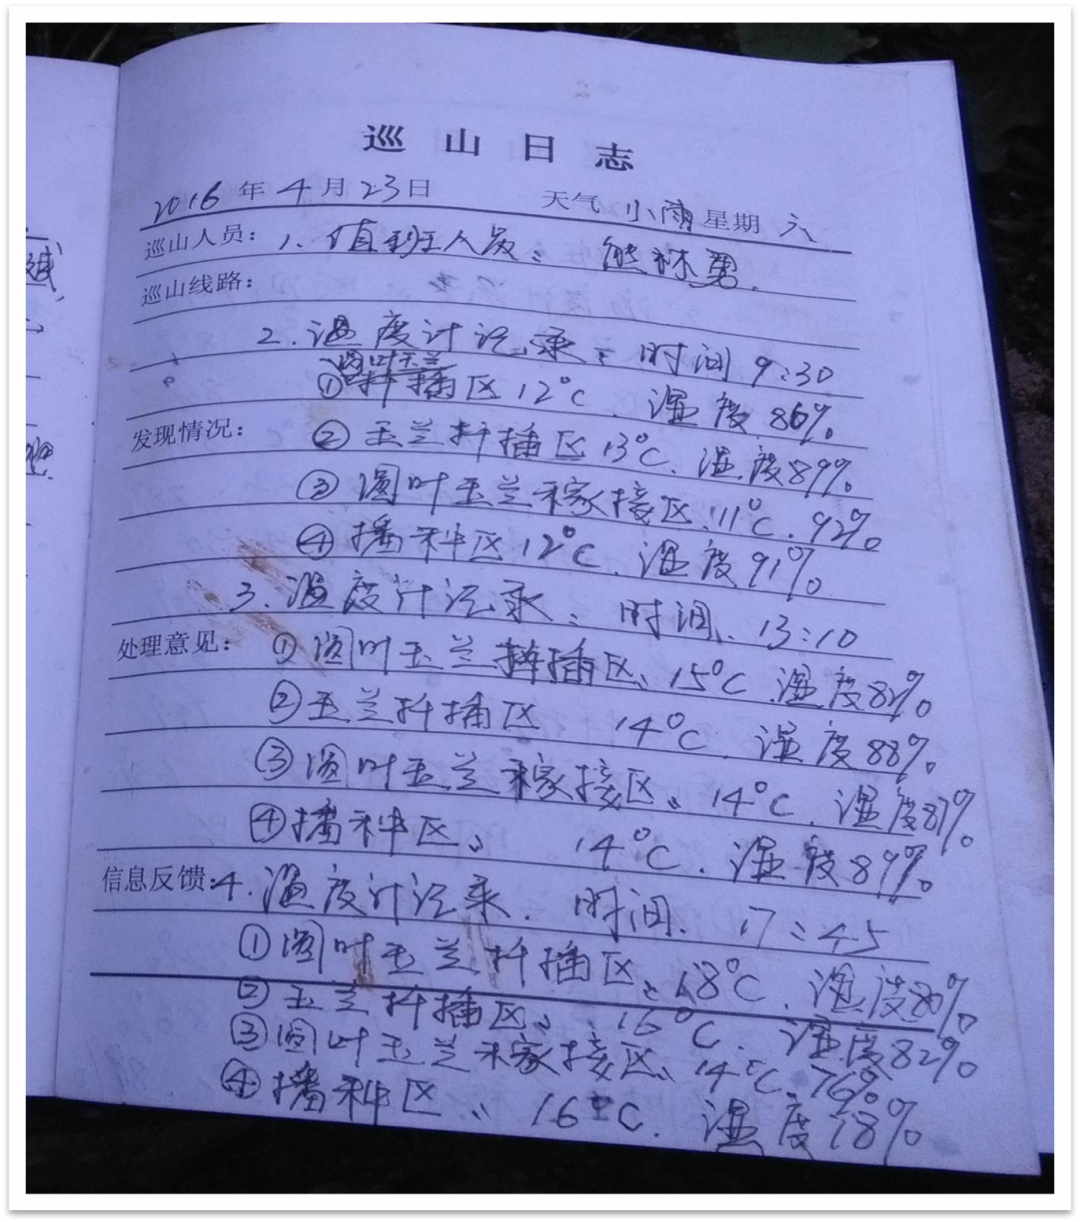 巡山日志
2016年4月23日 天气 小雨 星期 六
巡山人员: 1. 值班人员: 熊林勇.
巡山线路:
2. 温度计记录: 时间 9:30
圆叶玉兰
①扦插区 12°C. 湿度 86%
发现情况: ② 玉兰扦插区 13°C. 湿度 89%
③ 圆叶玉兰稼接区. 11°C. 92%
④ 播种区 12°C. 湿度 91%
3. 温度计记录: 时间. 13:10
处理意见: ①圆叶玉兰扦插区、15°C. 湿度 82%
②玉兰扦插区 14°C. 湿度 88%
③圆叶玉兰稼接区、14°C. 湿度 87%
④播种区、 14°C. 湿度 89%
信息反馈: 4. 温度计记录. 时间. 17:45
①圆叶玉兰扦插区、18°C. 湿度 80%
②玉兰扦插区、16°C. 湿度 82%
③圆叶玉兰稼接区、14°C. 76%
④播种区、16°C. 湿度 78%